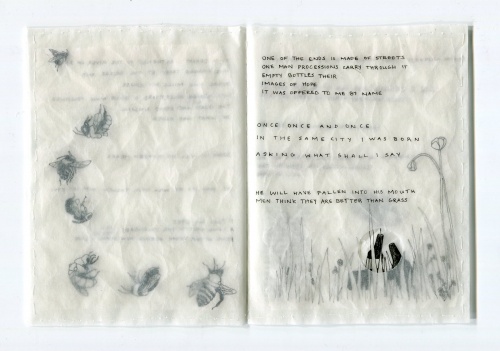 ONE OF THE ENDS IS MADE OF STREETS
ONE MAN PROCESSIONS CARRY THROUGH IT
EMPTY BOTTLES THEIR
IMAGES OF HOPE
IT WAS OFFERED TO ME BY NAME
ONCE ONCE AND ONCE
IN THE SAME CITY I WAS BORN
ASKING WHAT SHALL I SAY
HE WILL HAVE FALLEN INTO HIS MOUTH
MEN THINK THEY ARE BETTER THAN GRASS